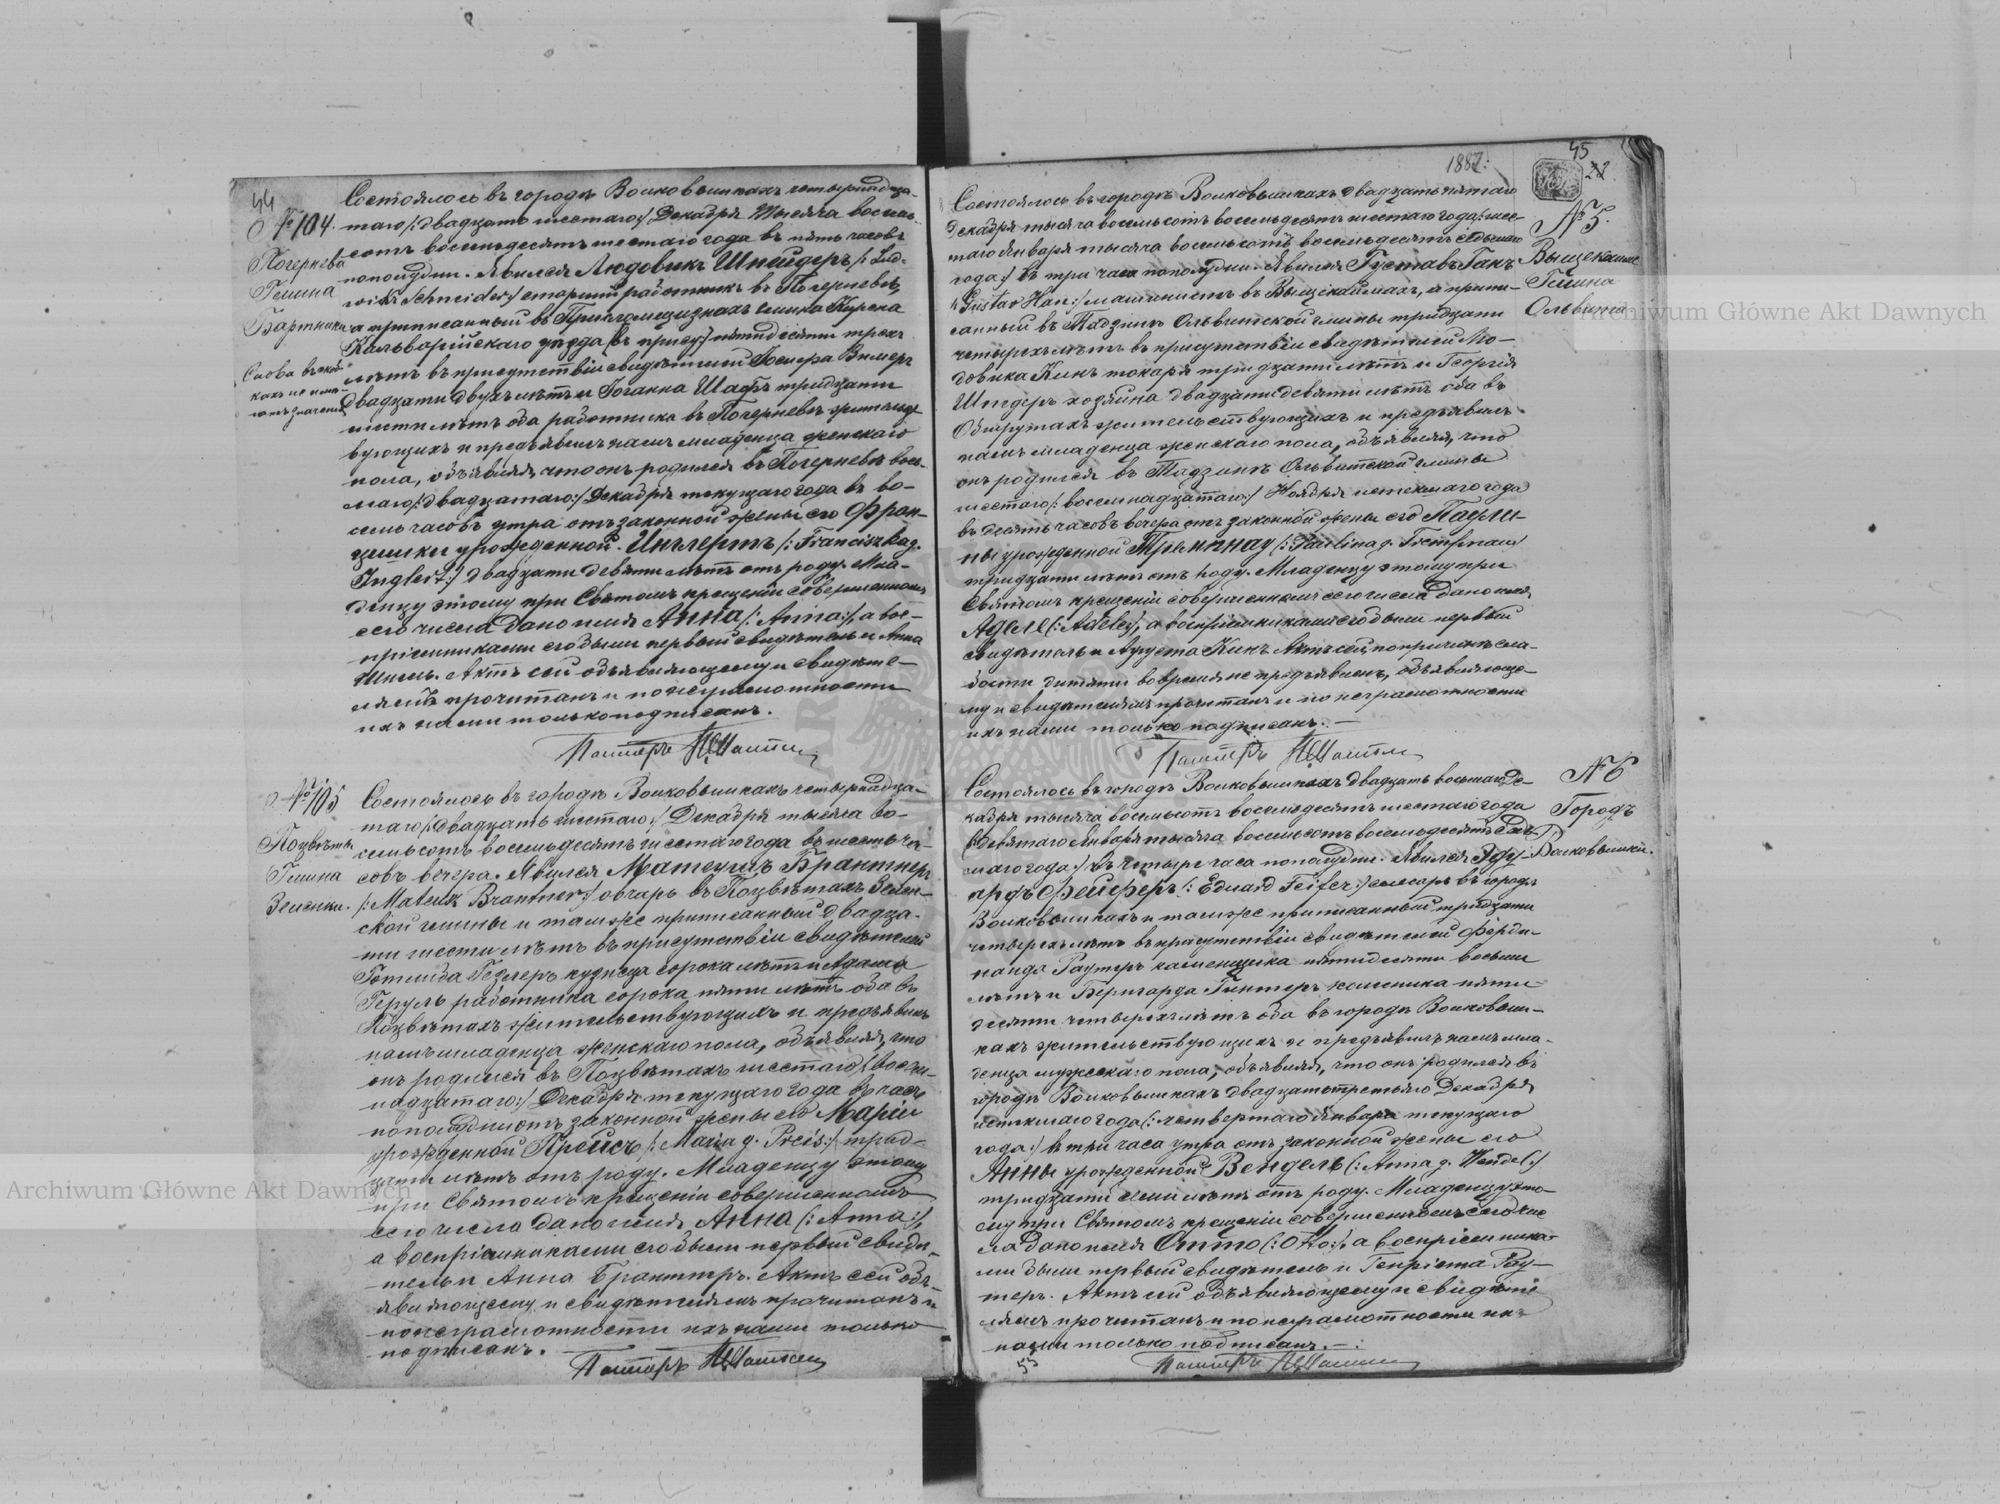 44
№ 104.
Погернева
Гмина
Бартники
Состоялось въ городѣ Волковышкахъ четырнадца-
таго /: двадцать шестаго :/ Декабря тысяча восемь-
сотъ восемьдесятъ шестаго года въ пять часовъ
пополудни. Явился Людовикъ Шнейдеръ /: Lud-
wik Schneider :/ старшій работникъ въ Погерневѣ,
а приписанный въ гмина
Кальварійскаго уѣзда пятидесяти трехъ
лѣтъ въ присутствіи свидѣтелей
двадцати двухъ лѣтъ и Іоганна Шафъ тридцати
шести лѣтъ оба работника въ Погерневѣ жительст-
вующихъ и предъявилъ намъ младенца женскаго
пола, объявляя, что онъ родился въ Погерневѣ вось-
маго /: двадцатаго :/ Декабря текущаго года въ во-
семь часовъ утра отъ законной жены его Фран-
цишки урожденной Инглертъ /: Franciszka g.
Inglert :/ двадцати девяти лѣтъ отъ роду. Мла-
денцу этому при Святомъ крещеніи совершенномъ
сего числа дано имя Анна /: Anna :/, а вос-
пріемниками его были первый свидѣтель и Анна
Актъ сей объявляющему и свидѣте-
лямъ прочитанъ и по неграмотности
ихъ нами только подписанъ.
Пасторъ
№ 105
Поцвѣты
Гмина
Зеленки.
Состоялось въ городѣ Волковышкахъ четырнадца-
таго /: двадцать шестаго :/ Декабря тысяча во-
семьсотъ восемьдесятъ шестаго года въ шесть ча-
совъ вечера. Явился Матеушъ Брантнеръ
/: Mateusz Brantner :/ овчарь въ Поцвѣтахъ Зелен-
ской гмины и тамъ же приписанный двадца-
ти шести лѣтъ въ присутствіи свидѣтелей
Готлиба кузнеца сорока лѣтъ и Адама
работника сорока пяти лѣтъ оба въ
Поцвѣтахъ жительствующихъ и предъявилъ
намъ младенца женскаго пола, объявляя, что
онъ родился въ Поцвѣтахъ шестаго /: восем-
надцатаго :/ Декабря текущаго года въ часъ
пополудни отъ законной жены его Маріи
урожденной Прейсъ /: Maria g. Preis :/ трид-
цати лѣтъ отъ роду. Младенцу этому
при Святомъ крещеніи совершенномъ
сего числа дано имя Анна /: Anna :/,
а воспріемниками его были первый свидѣ-
тель и Анна Брантнеръ. Актъ сей объ-
являющему и свидѣтелямъ прочитанъ и
по неграмотности ихъ нами только
подписанъ.
Пасторъ
1887.
45
№ 5.
Гмина
Ольвита
Состоялось въ городѣ Волковышкахъ двадцать пятаго
Декабря тысяча восемьсотъ восемьдесятъ шестаго года /: шес-
таго января тысяча восемьсотъ восемьдесятъ седьмаго
года :/ въ три часа пополудни. Явился Густавъ Ганъ
/: Gustav Han :/ машинистъ въ а припи-
санный въ Ольвитской гмины тридцати
четырехъ лѣтъ въ присутствіи свидѣтелей Лю-
довика Кинъ токаря тридцати лѣтъ и Георгія
хозяина двадцати девяти лѣтъ оба въ
жительствующихъ и предъявилъ
намъ младенца женскаго пола, объявляя, что
онъ родился въ Ольвитской гмины
шестаго /: восемнадцатаго :/ Ноября истекшаго года
въ десять часовъ вечера отъ законной жены его Паули-
ны урожденной /: Paulina g.
тридцати лѣтъ отъ роду. Младенцу этому при
Святомъ крещеніи совершенномъ сего числа дано имя
Аделе /: Adele :/, а воспріемниками его были первый
свидѣтель и Августа Кинъ. Актъ сей, по причинѣ сла-
бости дитяти во время не предъявленъ, объявляюще-
му и свидѣтелямъ прочитанъ и по неграмотности
ихъ нами только подписанъ.
Пасторъ
№ 6
Городъ
Волковышки.
Состоялось въ городѣ Волковышкахъ двадцать восьмаго Де-
кабря тысяча восемьсотъ восемьдесятъ шестаго года
/: девятаго января тысяча восемьсотъ восемьдесятъ седь-
маго года :/ въ четыре часа пополудни. Явился Эду-
ардъ Фейферъ /: Eduard Feifer :/ слесарь въ городѣ
Волковышкахъ и тамъ же приписанный тридцати
четырехъ лѣтъ въ присутствіи свидѣтелей Ферди-
нанда Раутеръ каменщика пятидесяти восьми
лѣтъ и Бернгарда Гинтеръ пяти-
десяти четырехъ лѣтъ оба въ городѣ Волковыш-
кахъ жительствующихъ и предъявилъ намъ мла-
денца мужескаго пола, объявляя, что онъ родился въ
городѣ Волковышкахъ двадцать третьяго Декабря
истекшаго года /: четвертаго января текущаго
года :/ въ три часа утра отъ законной жены его
Анны урожденной Вендель /: Anna g. Wendel :/
тридцати семи лѣтъ отъ роду. Младенцу это-
му при Святомъ крещеніи совершенномъ сего чис-
ла дано имя Отто /: Otto :/, а воспріемника-
ми были первый свидѣтель и Генріета Рау-
теръ. Актъ сей объявляющему и свидѣте-
лямъ прочитанъ и по неграмотности ихъ
нами только подписанъ.
Пасторъ
Archiwum Główne Akt Dawnych
Archiwum Główne Akt Dawnych